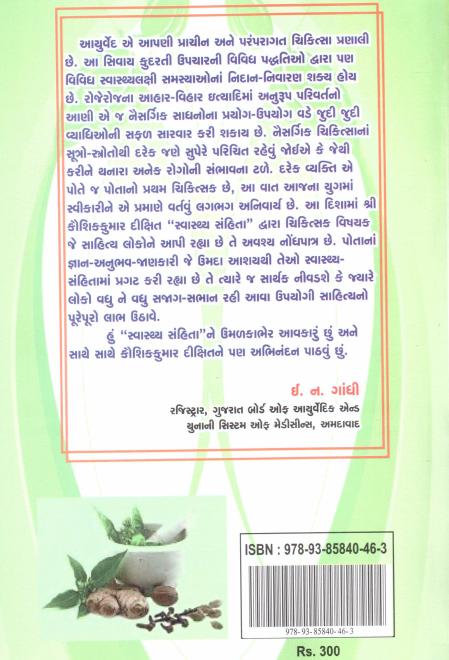 આયુર્વેદ એ આપણી પ્રાચીન અને પરંપરાગત ચિકિત્સા પ્રણાલી
છે. આ સિવાય કુદરતી ઉપચારની વિવિધ પદ્ધતિઓ દ્વારા પણ
વિવિધ સ્વાસ્થ્યલક્ષી સમસ્યાઓનાં નિદાન-નિવારણ શક્ય હોય
છે. રોજેરોજના આહાર-વિહાર ઇત્યાદિમાં અનુરૂપ પરિવર્તનો
આણી એ જ નૈસર્ગિક સાધનોના પ્રયોગ-ઉપયોગ વડે જુદી જુદી
વ્યાધિઓની સફળ સારવાર કરી શકાય છે. નૈસર્ગિક ચિકિત્સાનાં
સૂત્રો-સ્ત્રોતોથી દરેક જણે સુપેરે પરિચિત રહેવું જોઈએ કે જેથી
કરીને થનારા અનેક રોગોની સંભાવના ટળે. દરેક વ્યક્તિ એ
પોતે જ પોતાનો પ્રથમ ચિકિત્સક છે, આ વાત આજના યુગમાં
સ્વીકારીને એ પ્રમાણે વર્તવું લગભગ અનિવાર્ય છે. આ દિશામાં શ્રી
કૌશિકકુમાર દીક્ષિત “સ્વાસ્થ્ય સંહિતા” દ્વારા ચિકિત્સક વિષયક
જે સાહિત્ય લોકોને આપી રહ્યા છે તે અવશ્ય નોંધપાત્ર છે. પોતાનાં
જ્ઞાન-અનુભવ-જાણકારી જે ઉમદા આશયથી તેઓ સ્વાસ્થ્ય-
સંહિતામાં પ્રગટ કરી રહ્યા છે તે ત્યારે જ સાર્થક નીવડશે કે જ્યારે
લોકો વધુ ને વધુ સજાગ-સભાન રહી આવા ઉપયોગી સાહિત્યનો
પૂરેપૂરો લાભ ઉઠાવે.
હું “સ્વાસ્થ્ય સંહિતા”ને ઉમળકાભેર આવકારું છું અને
સાથે સાથે કૌશિકકુમાર દીક્ષિતને પણ અભિનંદન પાઠવું છું.
ઈ. ન. ગાંધી
રજિસ્ટ્રાર, ગુજરાત બોર્ડ ઓફ આયુર્વેદિક એન્ડ
યુનાની સિસ્ટમ ઓફ મેડીસીન્સ, અમદાવાદ
ISBN : 978-93-85840-46-3
978-93-85840-46-3
Rs. 300